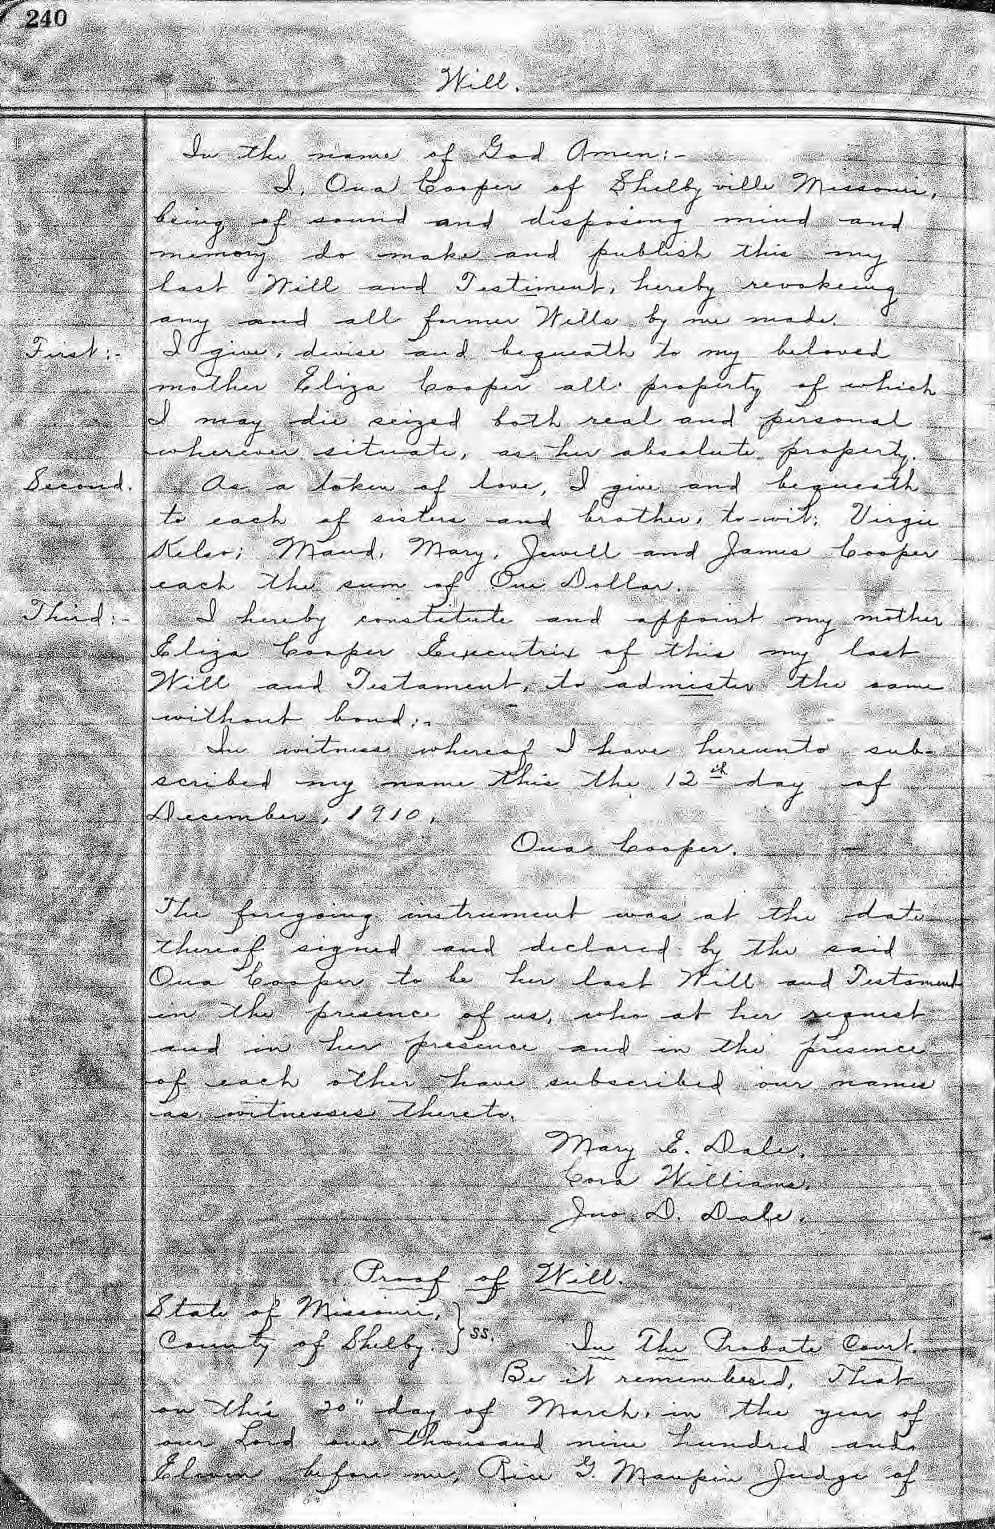 240
Will.
In the name of God Amen:-
I, Ona Cooper of Shelbyville Missouri,
being of sound and disposing mind and
memory do make and publish this my
last Will and Testiment, hereby revokeing
any and all former Wills by me made.
First:- I give, devise and bequeath to my beloved
mother Eliza Cooper all property of which
I may die seized both real and personal
wherever situate, as her absolute property.
Second. As a token of love, I give and bequeath
to each of sisters and brother, to-wit: Virgie
Kelso; Maud, Mary, Jewell and James Cooper
each the sum of One Dollar.
Third:- I hereby constitute and appoint my mother
Eliza Cooper Executrix of this my last
Will and Testament, to admister the same
without bond:-
In witness whereof I have hereunto sub-
scribed my name this the 12th day of
December, 1910.
Ona Cooper.
The foregoing instrument was at the date
thereof signed and declared by the said
Ona Cooper to be her last Will and Testament
in the presence of us, who at her request
and in her presence and in the presence
of each other have subscribed our names
as witnesses thereto.
Mary E. Dale.
Cora Williams.
Jno. D. Dale.
Proof of Will.
State of Missouri,
County of Shelby. } ss. In The Probate Court.
Be it remembered, That
on this 20" day of March, in the year of
our Lord one thousand nine hundred and
Eleven before me, Rice G. Maupin Judge of